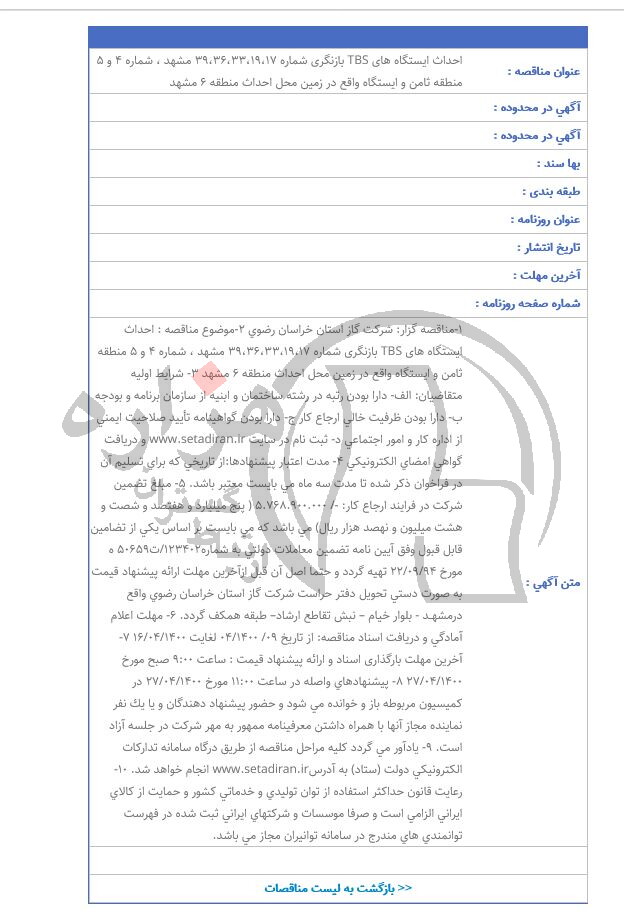 عنوان مناقصه :
احداث ایستگاه های TBS بازنگری شماره ۳۹،۳۶،۳۳،۱۹،۱۷ مشهد ، شماره ۴ و ۵
منطقه ثامن و ایستگاه واقع در زمین محل احداث منطقه ۶ مشهد
آگهي در محدوده :
آگهي در محدوده :
بها سند :
طبقه بندی :
عنوان روزنامه :
تاریخ انتشار :
آخرین مهلت :
شماره صفحه روزنامه :
متن آگهي :
۱-مناقصه گزار: شرکت گاز استان خراسان رضوي ۲-موضوع مناقصه : احداث
ایستگاه های TBS بازنگری شماره ۳۹،۳۶،۳۳،۱۹،۱۷ مشهد ، شماره ۴ و ۵ منطقه
ثامن و ایستگاه واقع در زمین محل احداث منطقه ۶ مشهد ۳- شرایط اولیه
متقاضیان: الف- دارا بودن رتبه در رشته ساختمان و ابنیه از سازمان برنامه و بودجه
ب- دارا بودن ظرفیت خالي ارجاع کار ج- دارا بودن گواهینامه تأیید صلاحیت ایمني
از اداره کار و امور اجتماعي د- ثبت نام در سایت www.setadiran.ir و دریافت
گواهي امضاي الکترونیکي ۴- مدت اعتبار پیشنهادها:از تاریخي که براي تسلیم آن
در فراخوان ذکر شده تا مدت سه ماه مي بایست معتبر باشد. ۵- مبلغ تضمین
شرکت در فرایند ارجاع کار: -/ ۵.۷۶۸.۹۰۰.۰۰۰ ( پنج میلیارد و هفتصد و شصت و
هشت میلیون و نهصد هزار ریال) مي باشد که مي بایست بر اساس یکي از تضامین
قابل قبول وفق آیین نامه تضمین معاملات دولتي به شماره۱۲۳۴۰۲/ت۵۰۶۵۹ ه
مورخ ۲۲/۰۹/۹۴ تهیه گردد و حتما اصل آن قبل ازآخرین مهلت ارائه پیشنهاد قیمت
به صورت دستي تحویل دفتر حراست شرکت گاز استان خراسان رضوي واقع
درمشهـد - بلوار خیام – نبش تقاطع ارشاد– طبقه همکف گردد. ۶- مهلت اعلام
آمادگي و دریافت اسناد مناقصه: از تاریخ ۰۹/ ۰۴/۱۴۰۰ لغایت ۱۶/۰۴/۱۴۰۰ ۷-
آخرین مهلت بارگذاری اسناد و ارائه پیشنهاد قیمت : ساعت ۹:۰۰ صبح مورخ
۲۷/۰۴/۱۴۰۰ ۸- پیشنهادهاي واصله در ساعت ۱۱:۰۰ مورخ ۲۷/۰۴/۱۴۰۰ در
کمیسیون مربوطه باز و خوانده مي شود و حضور پیشنهاد دهندگان و یا یك نفر
نماینده مجاز آنها با همراه داشتن معرفینامه ممهور به مهر شرکت در جلسه آزاد
است. ۹- یادآور مي گردد کلیه مراحل مناقصه از طریق درگاه سامانه تدارکات
الکترونیکي دولت (ستاد) به آدرسwww.setadiran.ir انجام خواهد شد. ۱۰-
رعایت قانون حداکثر استفاده از توان تولیدي و خدماتي کشور و حمایت از کالاي
ایراني الزامي است و صرفا موسسات و شرکتهاي ایراني ثبت شده در فهرست
توانمندي هاي مندرج در سامانه توانیران مجاز مي باشد.
<< بازگشت به لیست مناقصات